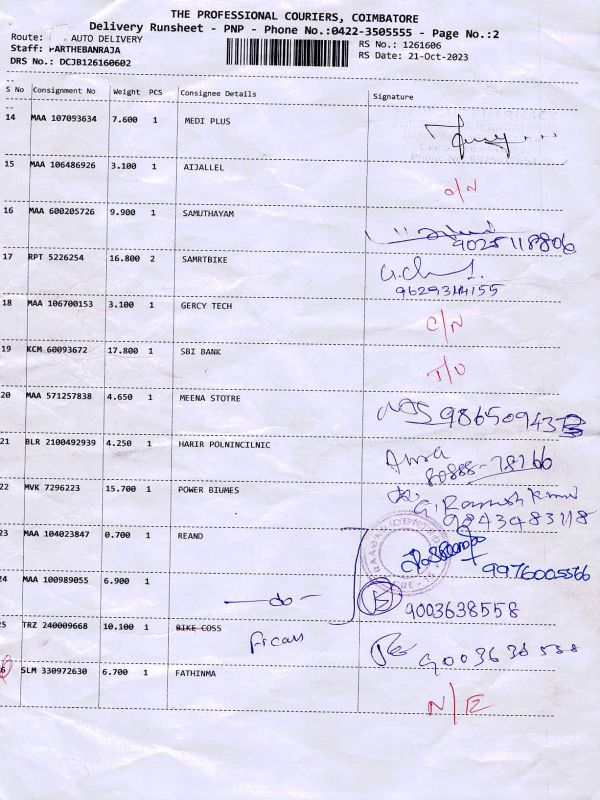 THE PROFESSIONAL COURIERS, COIMBATORE
Delivery Runsheet - PNP - Phone No.:0422-3505555 - Page No.:2
Route: AUTO DELIVERY
RS No.: 1261606
Staff: PARTHEBANRAJA
RS Date: 21-Oct-2023
DRS No.: DCJB126160602
S No Consignment No Weight PCS Consignee Details Signature
14 MAA 107093634 7.600 1 MEDI PLUS
15 MAA 106486926 3.100 1 AIJALLEL O/N
16 MAA 600205726 9.900 1 SAMUTHAYAM 9025118806
17 RPT 5226254 16.800 2 SAMRTBIKE
18 MAA 106700153 3.100 1 GERCY TECH C/N
19 KCM 60093672 17.800 1 SBI BANK T/U
20 MAA 571257838 4.650 1 MEENA STOTRE
21 BLR 2100492939 4.250 1 HARIR POLNINCILNIC
22 MVK 7296223 15.700 1 POWER BIUMES G. Ramesh Kumar
9843483118
23 MAA 104023847 0.700 1 REAND 9976005566
24 MAA 100989055 6.900 1 —do— 9003638558
25 TRZ 240009668 10.100 1 BIKE COSS
26 SLM 330972630 6.700 1 FATHINMA N/E